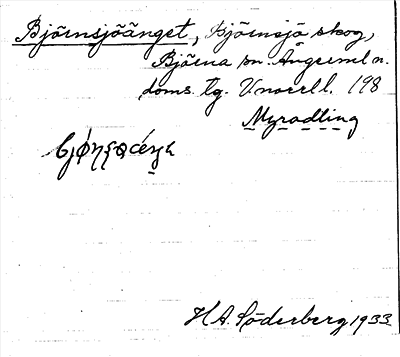 Björnsjöänget, Björnsjö skog,
Björna sn. Ångerml n.
doms. tg. Unoerl l. 198
Myrodling
H A. Söderberg 1933